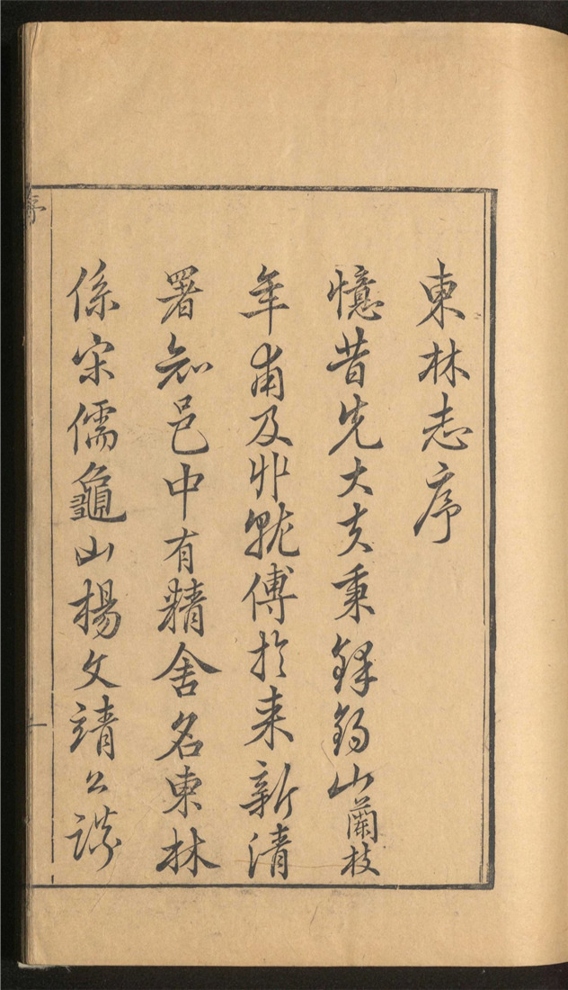 東林志序
憶昔先大夫秉鐸錫山蘭枝
年甫及丱就傅於来新清
署知邑中有精舍名東林
係宋儒龜山楊文靖公講
序
一